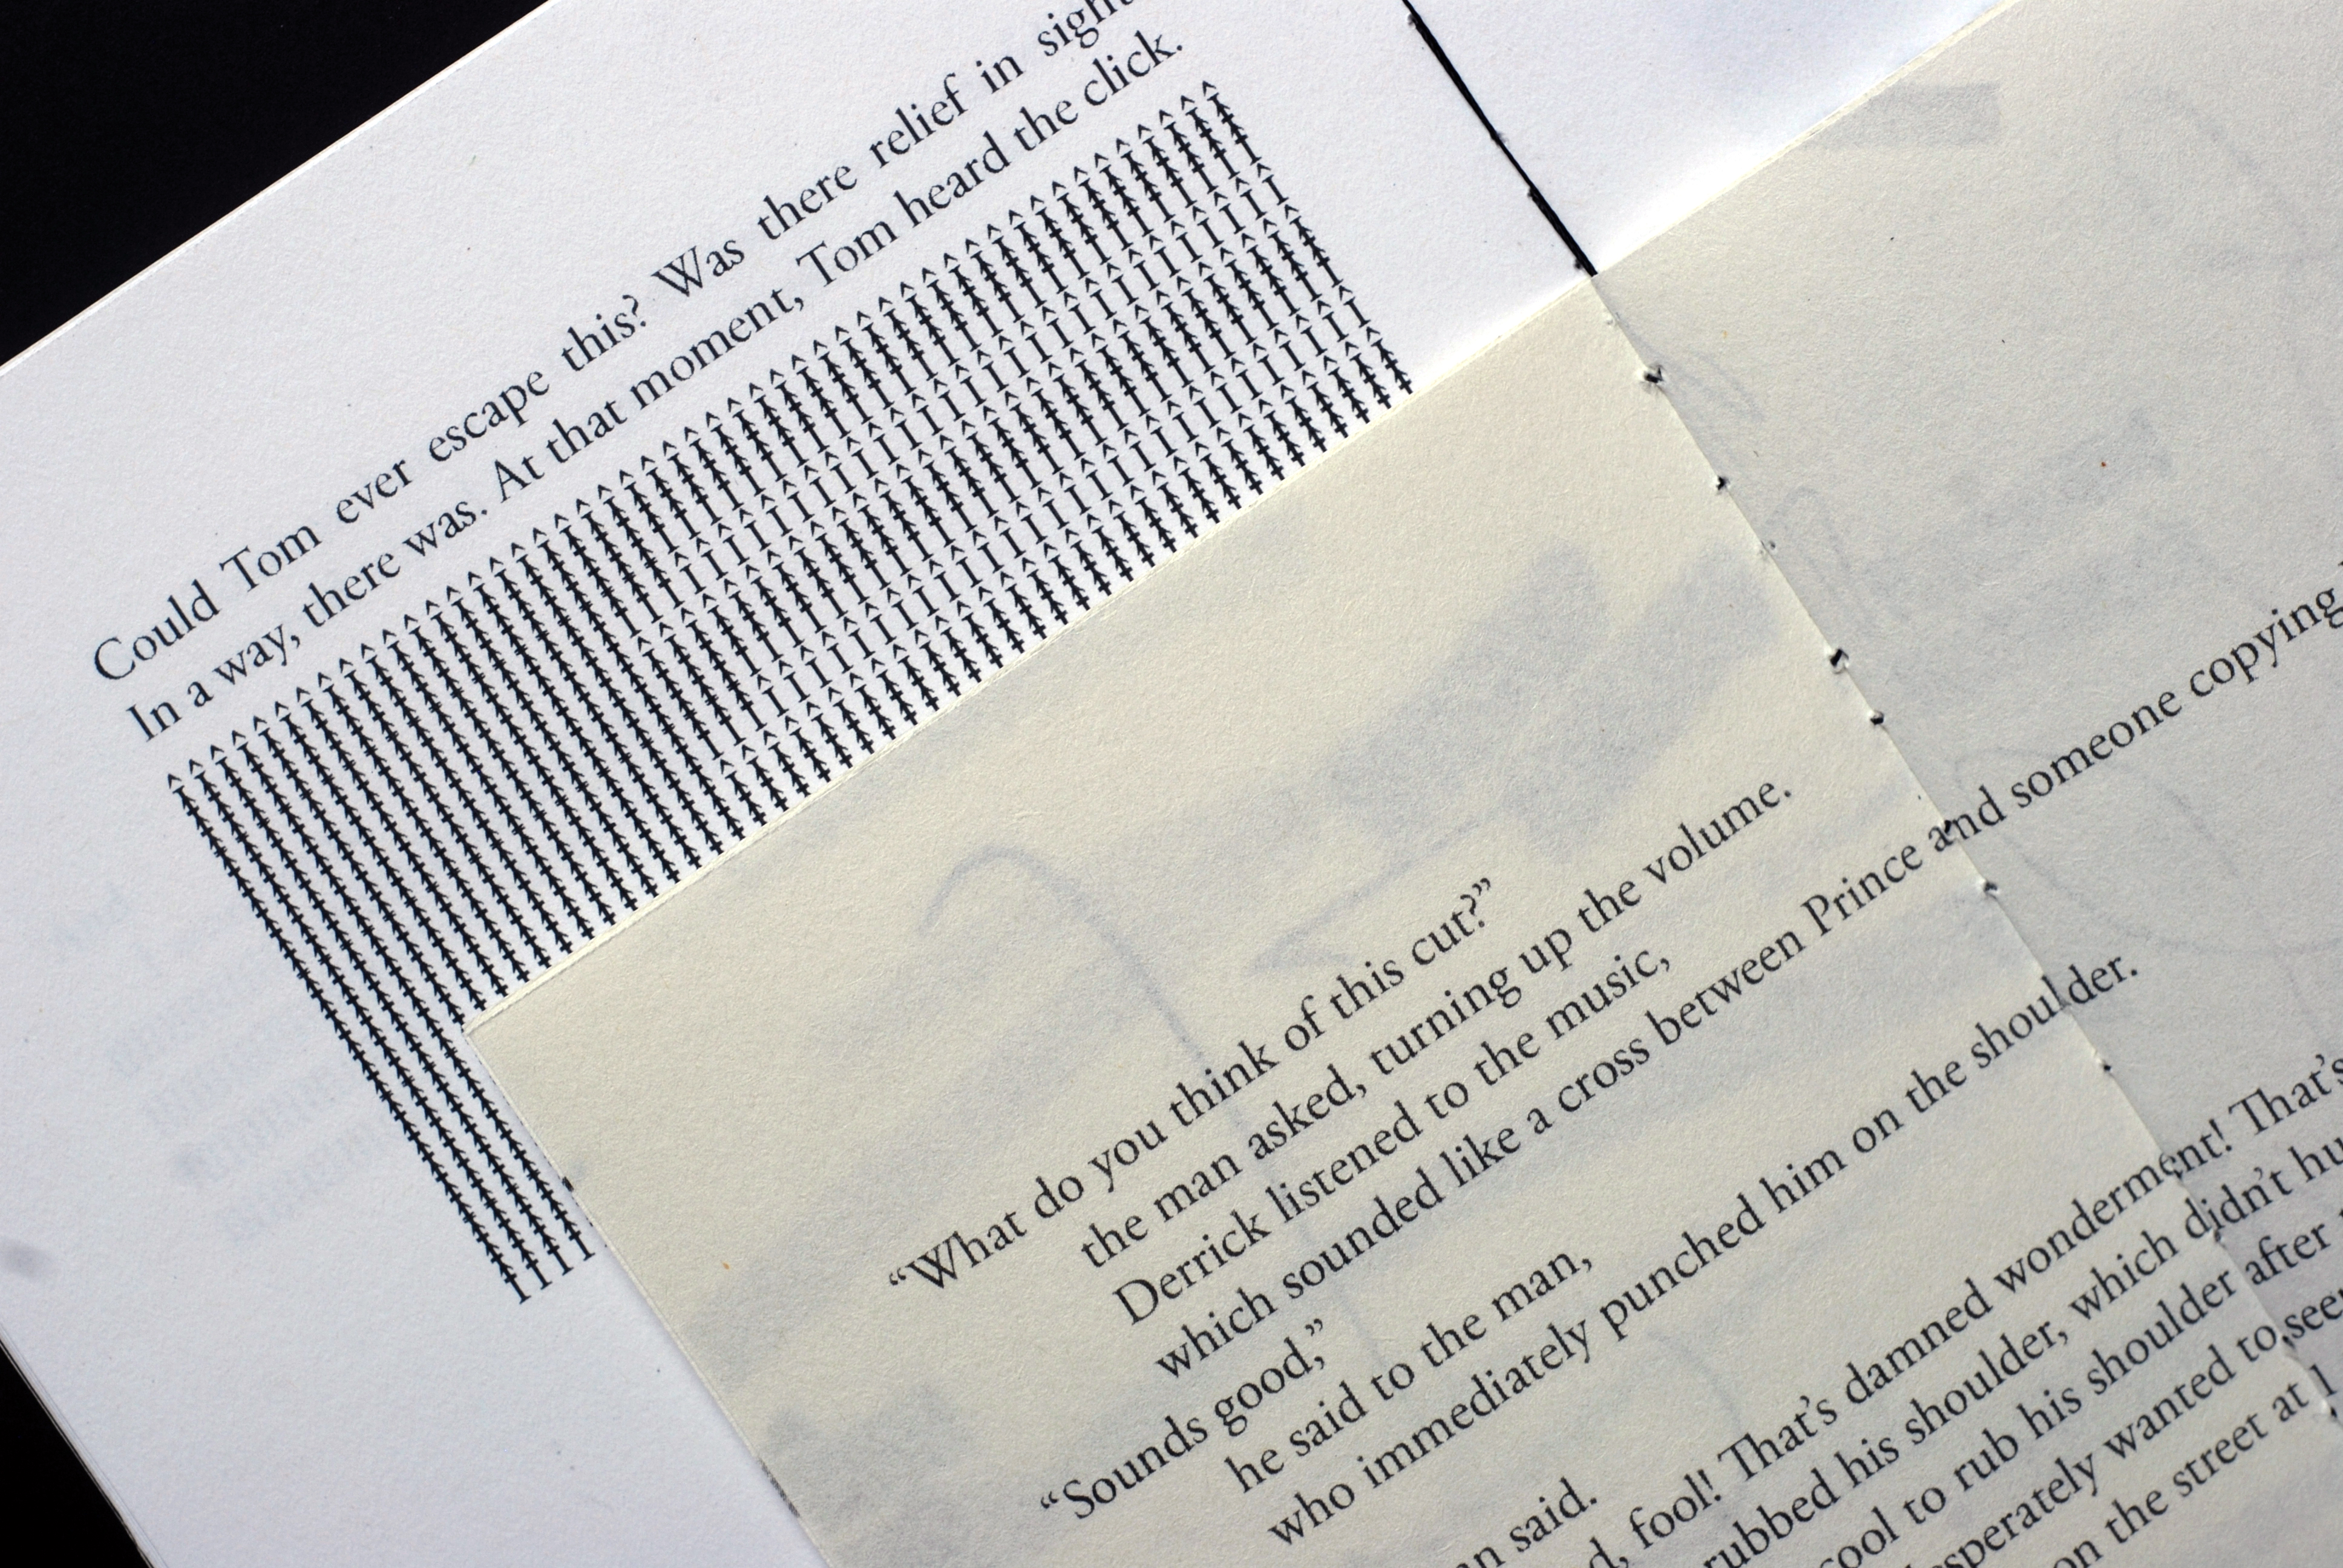 Could Tom ever escape this? Was there relief in sight
In a way, there was. At that moment, Tom heard the click.
“What do you think of this cut?”
the man asked, turning up the volume.
Derrick listened to the music,
which sounded like a cross between Prince and someone copying
“Sounds good,”
he said to the man,
who immediately punched him on the shoulder.
said.
fool! That’s damned wonderment! That’s
rubbed his shoulder, which didn’t
cool to rub his shoulder after
wanted to seem
on the street at